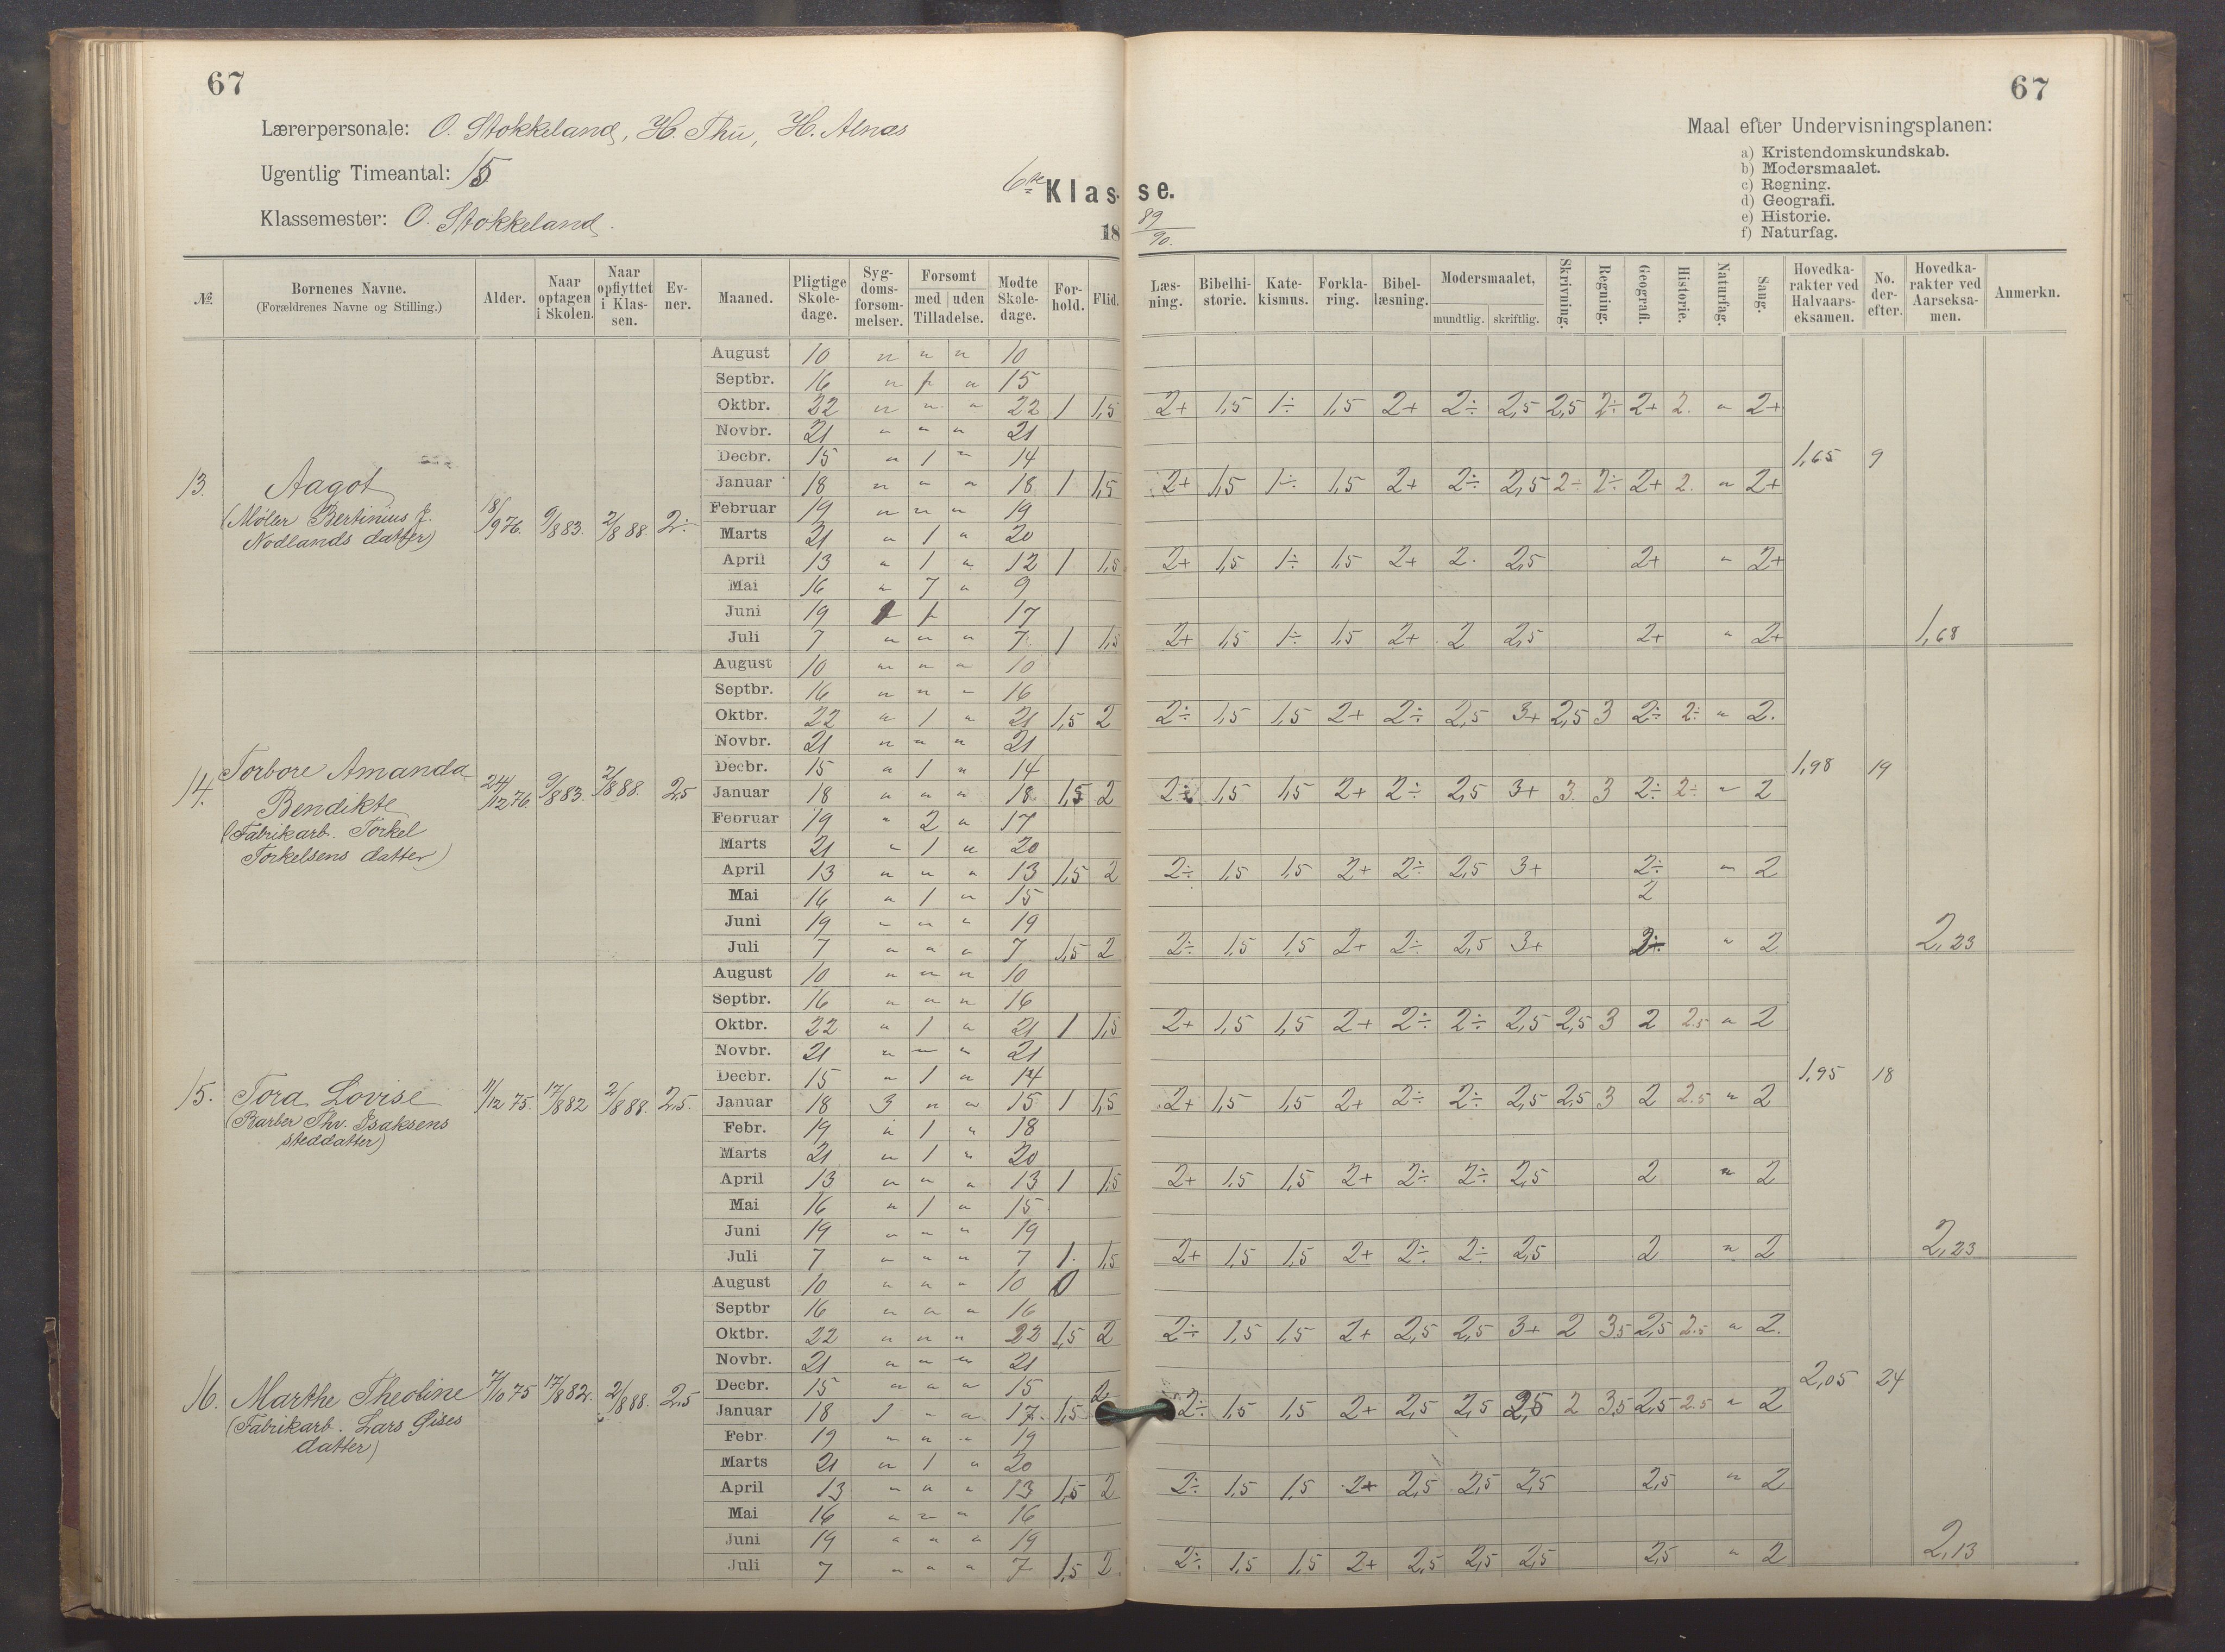 67
67
Lærerpersonale: O. Stokkeland, H. Thu, H. Alnæs
Maal efter Undervisningsplanen:
a) Kristendomskundskab.
b) Modersmaalet.
c) Regning.
d) Geografi.
e) Historie.
f) Naturfag.
Ugentlig Timeantal: 15
6te Klas- se.
Klassemester: O. Stokkeland.
18 89/90.
№ Børnenes Navne. (Forældrenes Navne og Stilling.) Alder. Naar optagen i Skolen. Naar opflyttet i Klassen. Evner. Maaned. Pligtige Skoledage. Sygdomsforsømmelser. Forsømt med uden Tilladelse. Mødte Skoledage. Forhold. Flid. Læsning. Bibelhistorie. Katekismus. Forklaring. Bibellæsning. Modersmaalet, mundtlig. skriftlig. Skrivning. Regning. Geografi. Historie. Naturfag. Sang. Hovedkarakter ved Halvaarseksamen. No. derefter. Hovedkarakter ved Aarseksamen. Anmerkn.
13. Aagot
(Møler Bertinius J.
Nodlands datter)
18/9 76. 9/8 83. 2/8 88. 2÷
August 10 " " " 10
Septbr. 16 " 1 " 15
Oktbr. 22 " " " 22 1 1,5 2+ 1,5 1÷ 1,5 2+ 2÷ 2,5 2,5 2÷ 2+ 2. " 2+
Novbr. 21 " " " 21
Decbr. 15 " 1 " 14 1,65 9
Januar 18 " " " 18 1 1,5 2+ 1,5 1÷ 1,5 2+ 2÷ 2,5 2÷ 2÷ 2+ 2. " 2+
Februar 19 " " " 19
Marts 21 " 1 " 20
April 13 " 1 " 12 1 1,5 2+ 1,5 1÷ 1,5 2+ 2. 2,5 2+ " 2+
Mai 16 " 7 " 9
Juni 19 1 1 17
Juli 7 " " " 7 1 1,5 2+ 1,5 1÷ 1,5 2+ 2 2,5 2+ " 2+ 1,68
14. Torbore Amanda
Bendikte
(Fabrikarb. Torkel
Torkelsens datter)
24/12 76 9/8 83. 2/8 88. 2,5
August 10 " " " 10
Septbr. 16 " " " 16
Oktbr. 22 " 1 " 21 1,5 2 2÷ 1,5 1,5 2+ 2÷ 2,5 3+ 2,5 3 2÷ 2÷ " 2.
Novbr. 21 " " " 21
Decbr. 15 " 1 " 14 1,98 19
Januar 18 " " " 18 1,5 2 2÷ 1,5 1,5 2+ 2÷ 2,5 3+ 3. 3 2÷ 2÷ " 2
Februar 19 " 2 " 17
Marts 21 " 1 " 20
April 13 " " " 13 1,5 2 2÷ 1,5 1,5 2+ 2÷ 2,5 3+ 2÷ " 2
Mai 16 " 1 " 15 2
Juni 19 " " " 19
Juli 7 " " " 7 1,5 2 2÷ 1,5 1,5 2+ 2÷ 2,5 3+ 2÷ " 2 2,23
15. Tora Lovise
(Barber Thv. Isaksens
steddatter)
11/12 75. 17/8 82 2/8 88. 2,5.
August 10 " " " 10
Septbr. 16 " " " 16
Oktbr. 22 " 1 " 21 1 1,5 2+ 1,5 1,5 2+ 2÷ 2÷ 2,5 2,5 3 2 2.5 " 2
Novbr. 21 " " " 21
Decbr. 15 " 1 " 14 1,95 18
Januar 18 3 " " 15 1 1,5 2+ 1,5 1,5 2+ 2÷ 2÷ 2,5 2,5 3 2 2.5 " 2
Febr. 19 " 1 " 18
Marts 21 " 1 " 20
April 13 " " " 13 1 1,5 2+ 1,5 1,5 2+ 2÷ 2÷ 2,5 2 " 2
Mai 16 " 1 " 15
Juni 19 " " " 19
Juli 7 " " " 7 1. 1,5 2+ 1,5 1,5 2+ 2÷ 2÷ 2,5 2 " 2 2,23
16. Marthe Theoline
(Fabrikarb. Lars Gises
datter)
7/10 75 17/8 82. 2/8 88. 2,5
August 10 " " " 10 0
Septbr 16 " " " 16
Oktbr. 22 " " " 22 1,5 2 2÷ 1,5 1,5 2+ 2,5 2,5 3+ 2 3,5 2,5 2.5 " 2.
Novbr. 21 " " " 21
Decbr. 15 " " " 15 2,05 24
Januar 18 1 " " 17. 1,5 2 2÷ 1,5 1,5 2+ 2,5 2,5 2,5 2 3,5 2,5 2.5 " 2
Febr. 19 " " " 19
Marts 21 " 1 " 20
April 13 " " " 13 1,5 2 2÷ 1,5 1,5 2+ 2,5 2,5 2,5 2,5 " 2
Mai 16 " " " 16
Juni 19 " " " 19
Juli 7 " " " 7 1,5 2. 2÷ 1,5 1,5 2+ 2,5 2,5 2,5 2,5 " 2 2,13